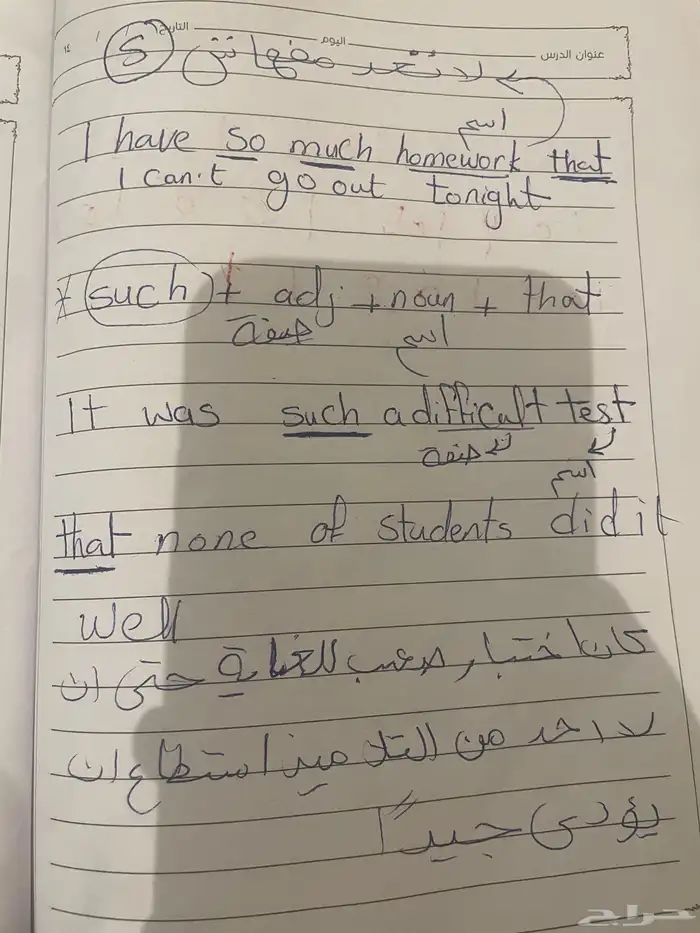 عنوان الدرس اليوم التاريخ / / ١٤
لا تُعد مفهاش (S)
I have so much homework that
اسم
I can't go out tonight
* such + adj + noun + that
صفة اسم
It was such a difficult test
صفة اسم
that none of students did it
well
كان اختبار صعب للغاية حتى ان
لا احد من التلاميذ استطاع ان
يؤدى جيداً
حراج